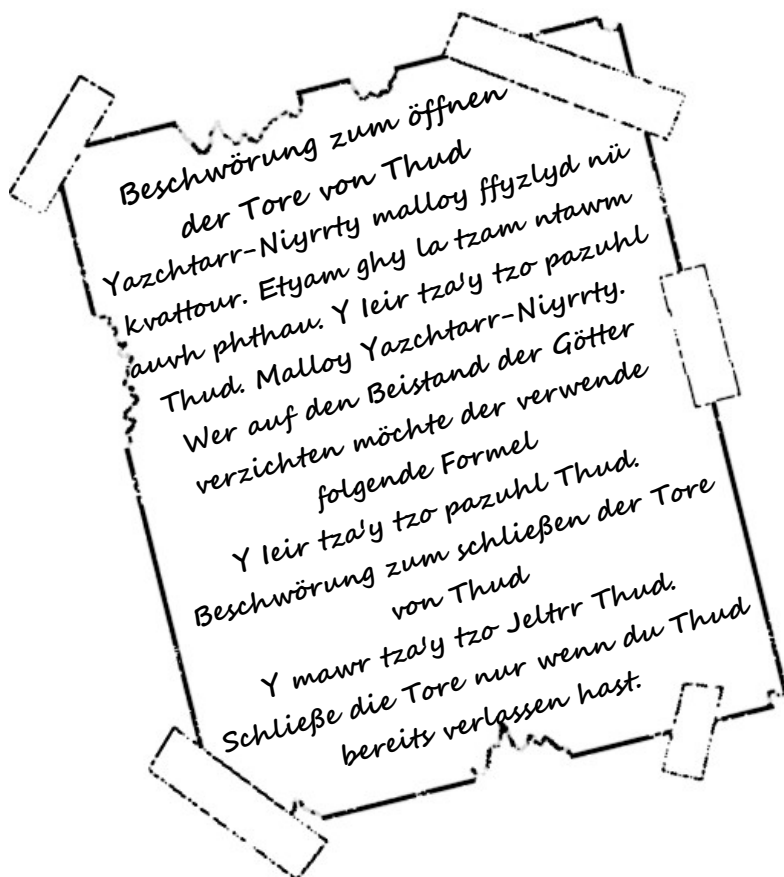 Beschwörung zum öffnen
der Tore von Thud
Yazchtarr-Niyrrty malloy ffyzlyd nü
kvattour. Etyam ghy la tzam ntawm
auvh phthau. Y leir tza'y tzo pazuhl
Thud. Malloy Yazchtarr-Niyrrty.
Wer auf den Beistand der Götter
verzichten möchte der verwende
folgende Formel
Y leir tza'y tzo pazuhl Thud.
Beschwörung zum schließen der Tore
von Thud
Y mawr tza'y tzo Jeltrr Thud.
Schließe die Tore nur wenn du Thud
bereits verlassen hast.